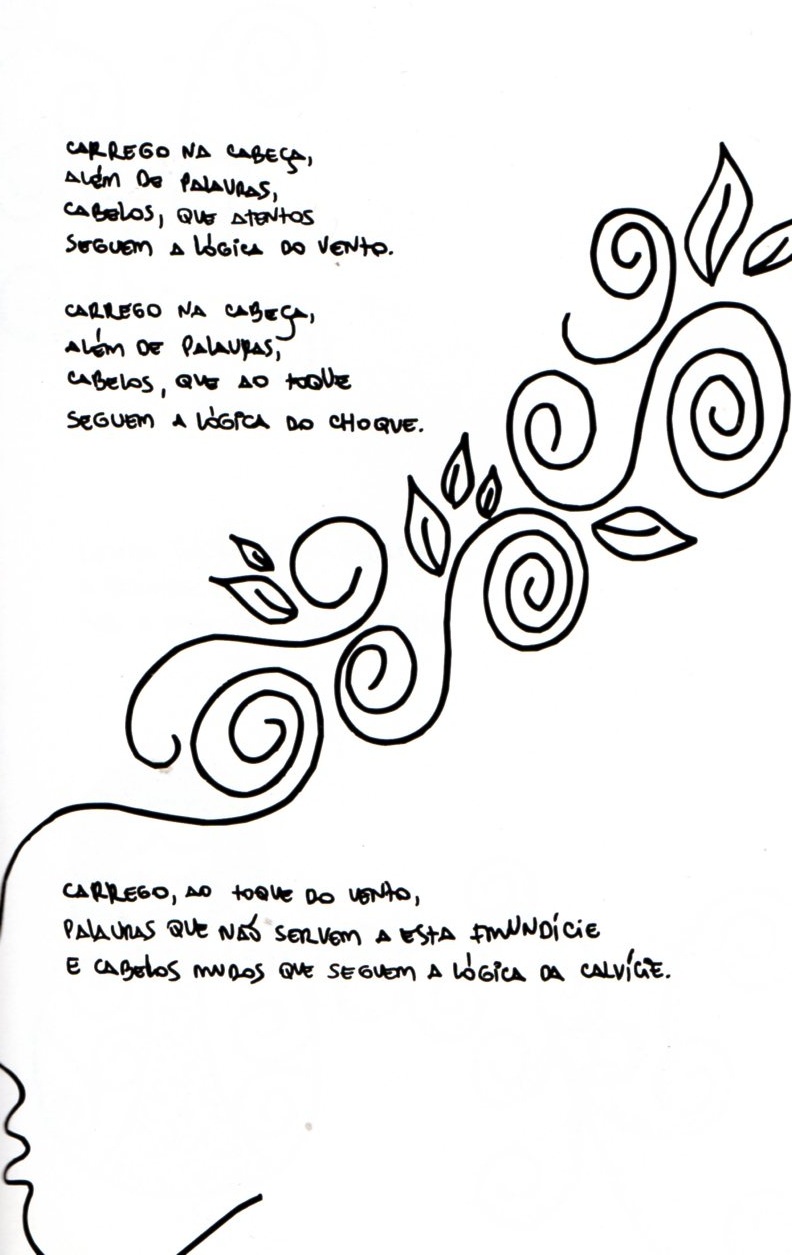 CARREGO NA CABEÇA,
ALÉM DE PALAVRAS,
CABELOS, QUE ATENTOS
SEGUEM A LÓGICA DO VENTO.
CARREGO NA CABEÇA,
ALÉM DE PALAVRAS,
CABELOS, QUE AO TOQUE
SEGUEM A LÓGICA DO CHOQUE.
CARREGO, AO TOQUE DO VENTO,
PALAVRAS QUE NÃO SERVEM A ESTA IMUNDÍCIE
E CABELOS MUDOS QUE SEGUEM A LÓGICA DA CALVÍCIE.